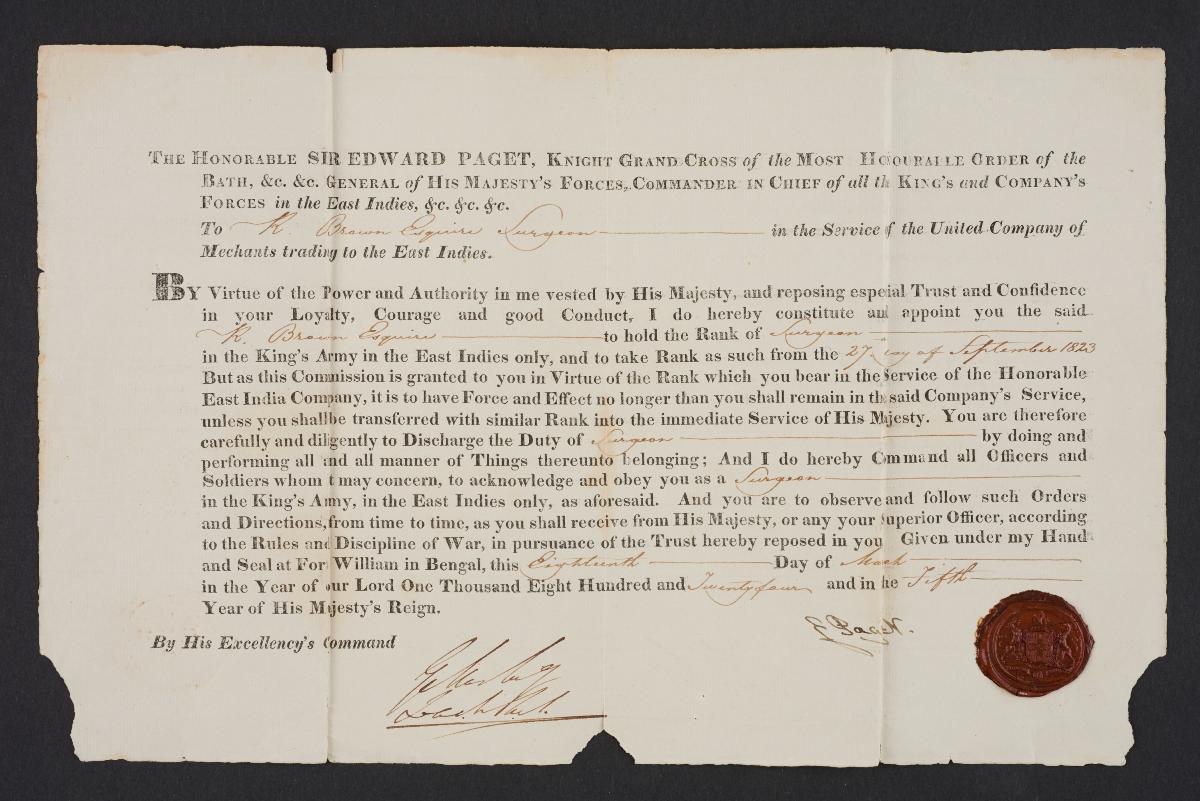 THE HONORABLE SIR EDWARD PAGET, KNIGHT GRAND CROSS of the MOST HONOURABLE ORDER of the
BATH, &c. &c. GENERAL of HIS MAJESTY'S FORCES, COMMANDER IN CHIEF of all th KING'S and COMPANY'S
FORCES in the EAST INDIES, &c. &c. &c.
To K. Brown Esquire Surgeon in the Service f the United Company of
Mechants trading to the East Indies.
BY Virtue of the Power and Authority in me vested by His Majesty, and reposing espeial Trust and Confidence
in your Loyalty, Courage and good Conduct, I do hereby constitute and appoint you the said
K. Brown Esquire to hold the Rank of Surgeon
in the King's Army in the East Indies only, and to take Rank as such from the 27 day of September 1823
But as this Commission is granted to you in Virtue of the Rank which you bear in the Service of the Honorable
East India Company, it is to have Force and Effect no longer than you shall remain in th said Company's Service,
unless you shall be transferred with similar Rank into the immediate Service of His Majesty. You are therefore
carefully and diligently to Discharge the Duty of Surgeon by doing and
performing all and all manner of Things thereunto belonging; And I do hereby Command all Officers and
Soldiers whom t may concern, to acknowledge and obey you as a Surgeon
in the King's Army, in the East Indies only, as aforesaid. And you are to observe and follow such Orders
and Directions, from time to time, as you shall receive from His Majesty, or any your Superior Officer, according
to the Rules and Discipline of War, in pursuance of the Trust hereby reposed in you Given under my Hand
and Seal at For William in Bengal, this Eighteenth Day of March
in the Year of our Lord One Thousand Eight Hundred and Twenty four and in he Fifth
Year of His Majesty's Reign.
E Paget.
By His Excellency's Command